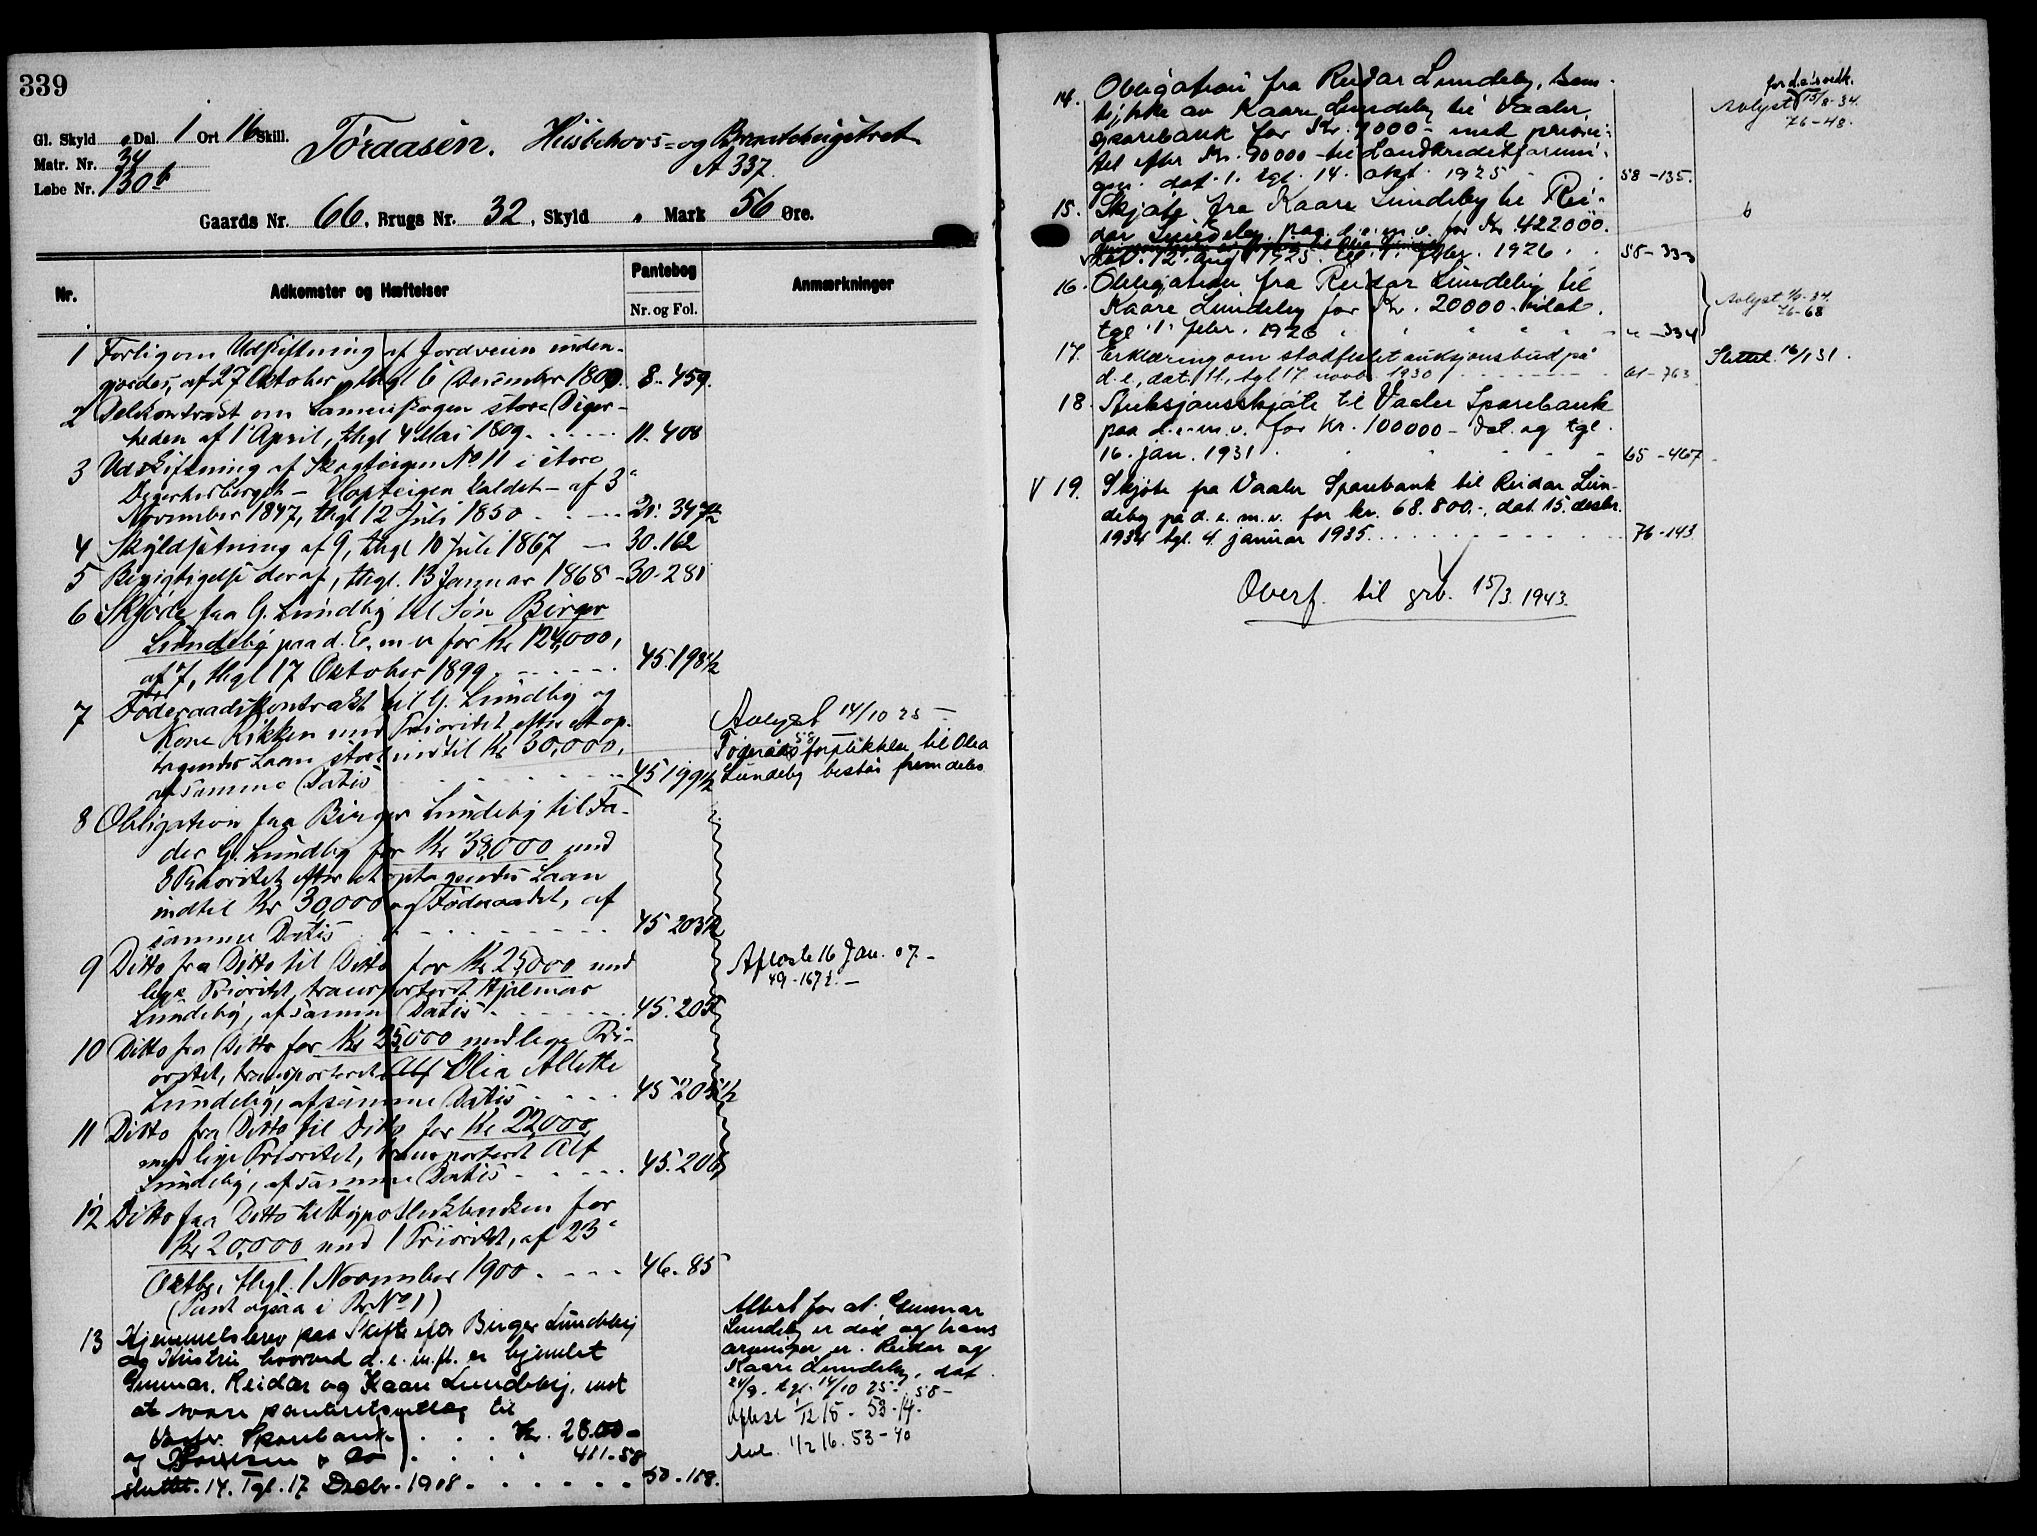 339
Gl. Skyld " Dal. 1 Ort 16 Skill.
Matr. Nr. 34
Løbe Nr. 130b
Toraasen. Husbehovs- og Brændehugstret
A 337.
Gaards Nr. 66, Brugs Nr. 32, Skyld " Mark 56 Øre.
Nr. Adkomster og Hæftelser Pantebog Anmærkninger
Nr. og Fol.
1 Forlig om Udskiftning af Jordveien inden-
gjærdes, af 27 Oktober, thgl 6 Desember 180 8-459.
2 Delekontrakt om Sameieskogen store Diger-
heden af 1 April, thgl 4 Mai 1809. 11-408
3 Udskiftning af Skogteigen No 11 i store
Digerhesberget - kaldet - af 3
November 1847, thgl 12 Juli 1850 21. 347b
4 Skyldsætning af 9, thgl 10 Juli 1867 30.162
5 Berigtigelse deraf, thgl. 13 Januar 1868 - 30-281
6 Skjøde fra G. Lundeby til Søn Birger
Lundeby paa d. E. m v for Kr 124,000,
af 7, thgl 17 Oktober 1899. 45.198 1/2
7 Føderaadskontrakt til G. Lundeby og
Kone Rikken med Prioritet efter et op-
tagendes Laan stort indtil Kr 30,000,
af samme Datis 45 199 1/2
Avlyst 14/10 25 -
58
Føderåds forpliktelse til Olea
Lundeby består fremdeles
8 Obligation fra Birger Lundeby til Fa-
der G. Lundeby for Kr 38,000 med
3 Prioritet efter et optagendes Laan
indtil Kr 30,000 og Føderaadet, af
samme Datis 45 203 1/2
9 Ditto fra Ditto til Ditto for Kr 25,000 med
lige Prioritet, transporteret Hjalmar
Lundeby, af samme Datis 45.205
Aflæste 16 Jan. 07 -
49-167 1/2 -
10 Ditto fra Ditto for Kr 25,000 med lige Pri-
oritet, transporteret Alf Olia Alette
Lundeby, af samme Datis 45 205 1/2
11 Ditto fra Ditto til Ditto for Kr 22,000
med lige Prioritet, transporteret Alf
Lundeby, af samme Datis 45.206
12 Ditto fra Ditto til Hypothekbanken for
Kr 20,000 med 1 Prioritet, af 23
Oktbr, thgl. 1 November 1900. 46-85
(Pant ogsaa i Br No 1)
13 Hjemmelsbrev paa Skifte efter Birger Lundeby
og Hustru hvorved d. e. m. fl. er hjemlet
Gunnar, Reidar og Kaare Lundeby, mot
at svare panteretsutlæg til
Vaaler Sparebank . . . Kr. 2800 -
og & Co . . . 411-58
sluttet. 14. Tgl. 17 Desbr. 1918 53-189.
Attest for at Gunnar
Lundeby er død og hans
arvinger er Reidar og
Kaare Lundeby, dat
24/9. tgl. 14/10 25. 58-
Aflæst 1/12 15 - 53-14.
Avl. 1/2 16. 53-40
14. Obligation fra Reidar Lundeby, sam-
tykke av Kaare Lundeby til Vaaler
Sparebank for Kr. 9000 - med priori-
tet efter Kr. 90000 - til Landkreditforeni-
gen. dat. 1. tgl. 14. okt. 1925 58-135.
for d.e.s vedk.
Avlyst 15/8-34.
76-48.
15. Skjøte fra Kaare Lundeby til Rei-
dar Lundeby paa d. e. m. v. for Kr. 42200.
dat. 12. aug 1925. tgl. 1. febr. 1926 58-333
16. Obligation fra Reidar Lundeby til
Kaare Lundeby for Kr. 20000 - udat.
tgl. 1. febr. 1926 " -334
Avlyst 4/9-34.
76-68
17. Erklæring om stadfestet auksjonsbud på
d. e., dat. 14., tgl 17 novb. 1930 61-763
Slettet. 16/1 31.
18. Auksjonsskjøte til Vaaler Sparebank
paa d. e. m. v. for kr. 100000 - dat. og tgl.
16. jan. 1931. 65-467
V 19. Skjøte fra Vaaler Sparebank til Reidar Lun-
deby på d. e. m. v. for kr. 68.800.-, dat. 15. desbr.
1934 tgl. 4. januar 1935. 76-143
Overf. til grb. 15/3. 1943.